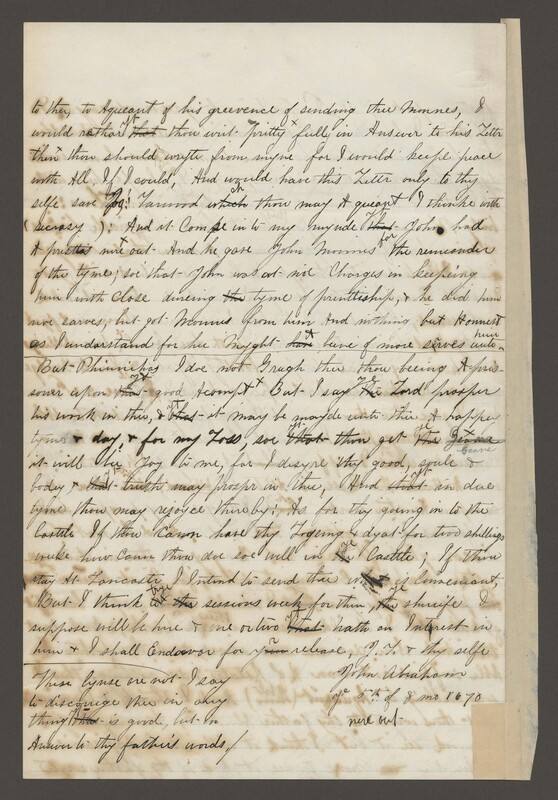 to thy, to Aqueant of his greevence of sending thee Monnes, I
would rathar yt that thou writ Pritty x full in Answer to his Letr
then x thou should wryte from myne for I would keepe peace
with All, If I could, And would have this Letter only to thy
selfe save Tarwood wch which thou may A queant I thinke with
(secrasy): And it Compe in to my mynde yt that John had
A prettes nire out. And he gave John Monnies for the remainder
of the tyme; soe that John was at noe Charges in keeping
him with Close dureing the tyme of printtiship, & he did him
noe sarves, but got Monnies from him And nothing but Honnest
as I understand for hee Myght have bene of more serves unto him
But Phinnihas I doe not Grugh thee thou beeing A pris
oner upon that yt good Acompt x But I say the ye Lord prosper
his work in thee, & that yt it may be mayde unto thee A happey
tyme & day, & for my Loss, soe that yt thou get the ye
it will bee Joy to me, for I desyre thy good, soule &
body, & that yt truth may prospr in thee, And that yt in due
tyme thou may rejoyce thereby: As for thy going on to the
Castle If thou Canon have thy Logeing & dyat for two shillings
weeke how Cann thou doe soe well in ye Castle; If thou
stay At Lancastr I Intend to send thee is Conveniant,
But I think the sessions week for then, the shreife I
suppose will be here & one or two that yt hath an Interest in
him & I shall Endavor for your release, J. L. & thy selfe
These Lynse are not I say
to discorige thee in any
thing that yt is good, but in
Answer to thy fathers words/
John Abraham
ye 5th of 8 mo 1670
nere out